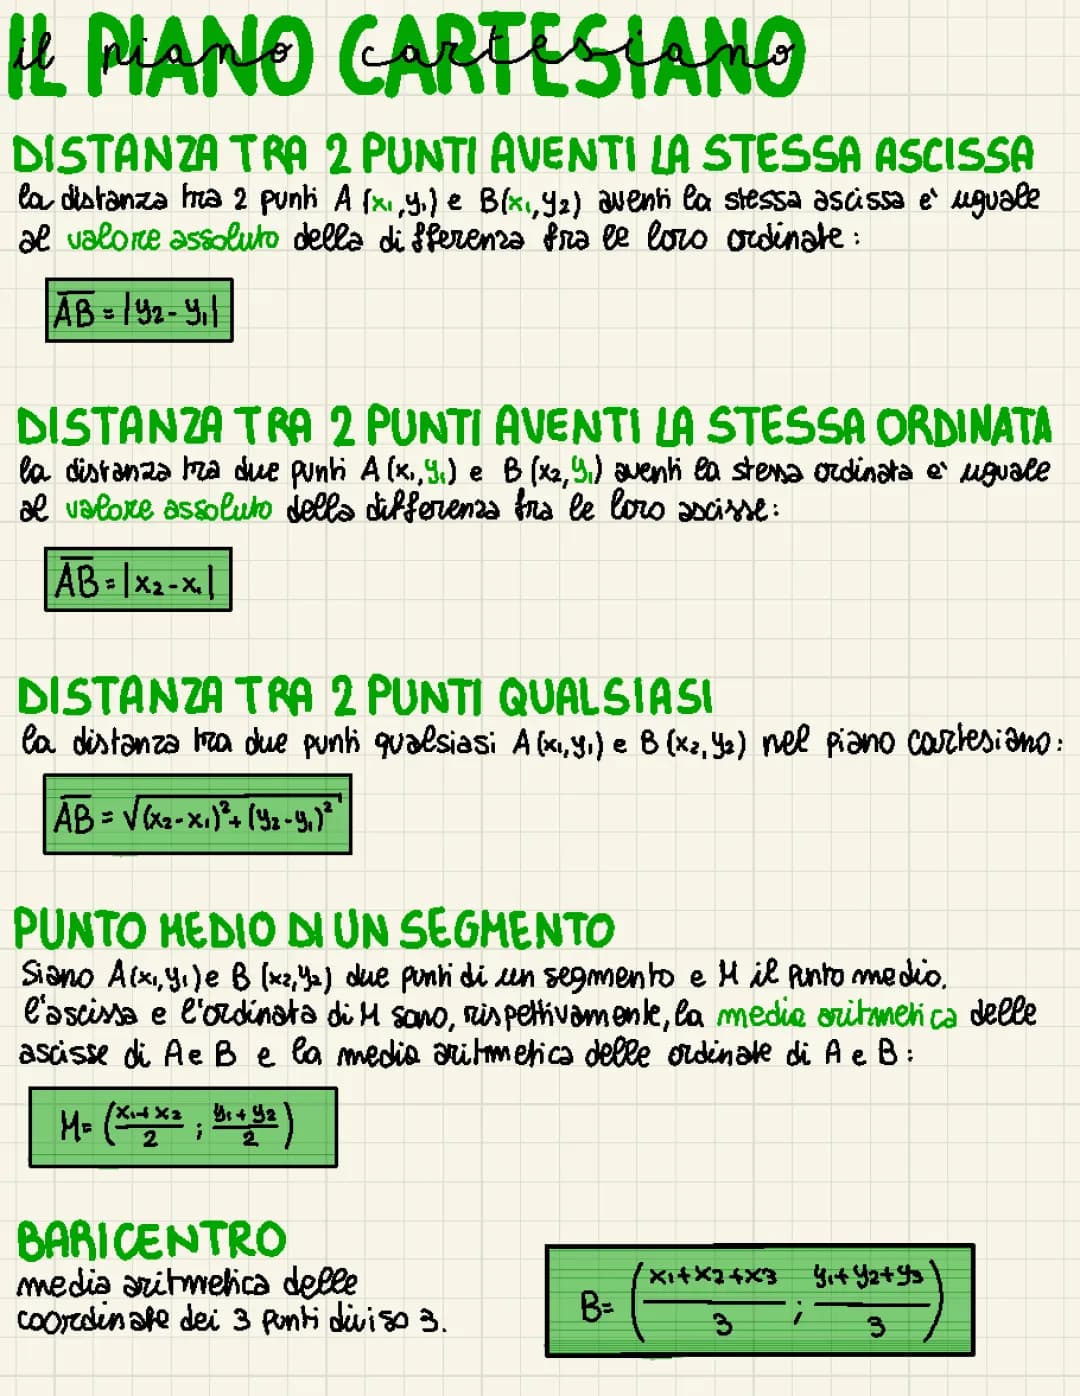 IL PIANO CARTESIANO
il piano cartesiano
DISTANZA TRA 2 PUNTI AVENTI LA STESSA ASCISSA
la distanza tra 2 punti A (x₁,y₁) e B(x₁,y₂) aventi la stessa ascissa e' uguale
al valore assoluto della differenza fra le loro ordinate:
A̅B̅ = |y₂-y₁|
DISTANZA TRA 2 PUNTI AVENTI LA STESSA ORDINATA
la distanza tra due punti A (x₁,y₁) e B (x₂,y₁) aventi la stessa ordinata e' uguale
al valore assoluto della differenza fra le loro ascisse:
A̅B̅ = |x₂-x₁|
DISTANZA TRA 2 PUNTI QUALSIASI
la distanza tra due punti qualsiasi A (x₁,y₁) e B (x₂,y₂) nel piano cartesiano:
A̅B̅ = √(x₂-x₁)²+(y₂-y₁)²
PUNTO MEDIO DI UN SEGMENTO
Siano A(x₁,y₁) e B (x₂,y₂) due punti di un segmento e M il punto medio.
l'ascissa e l'ordinata di M sono, rispettivamente, la media aritmetica delle
ascisse di A e B e la media aritmetica delle ordinate di A e B:
M= (x₁+x₂/2 ; y₁+y₂/2)
BARICENTRO
media aritmetica delle
coordinate dei 3 punti diviso 3.
B= (x₁+x₂+x₃/3 ; y₁+y₂+y₃/3)